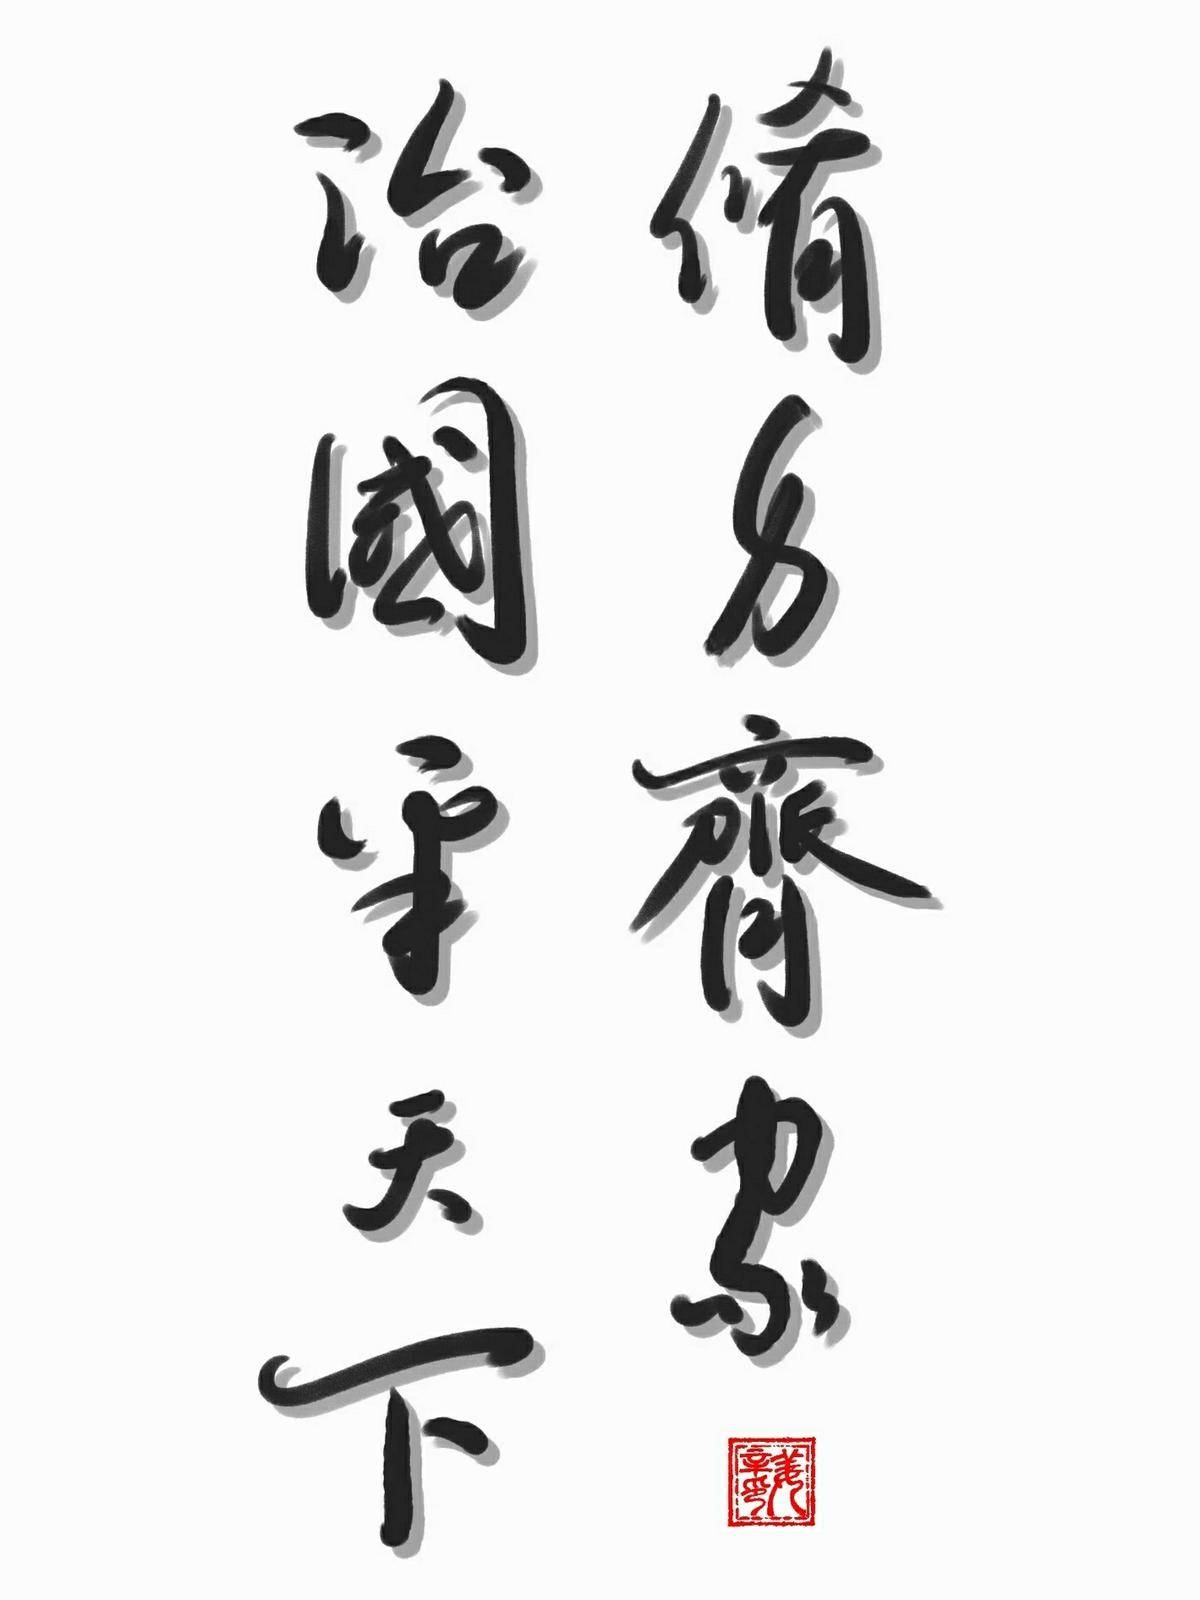 脩身齊家
治國平天下